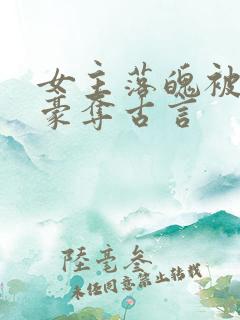 女主落魄被
豪夺古言
陸毫叁
未经同意禁止转载